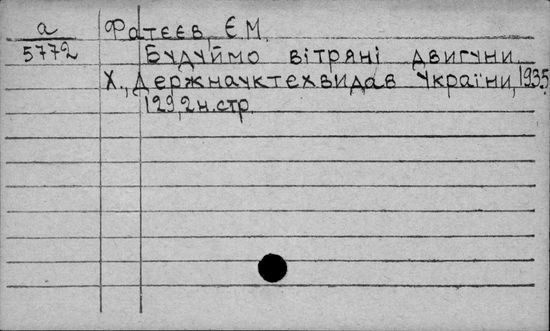 а
5772
Фатєєв, Є.М.
Будуймо вітряні двигуни.
Х., Держнауктехвидав України, 1935
129, 2 н. стр.